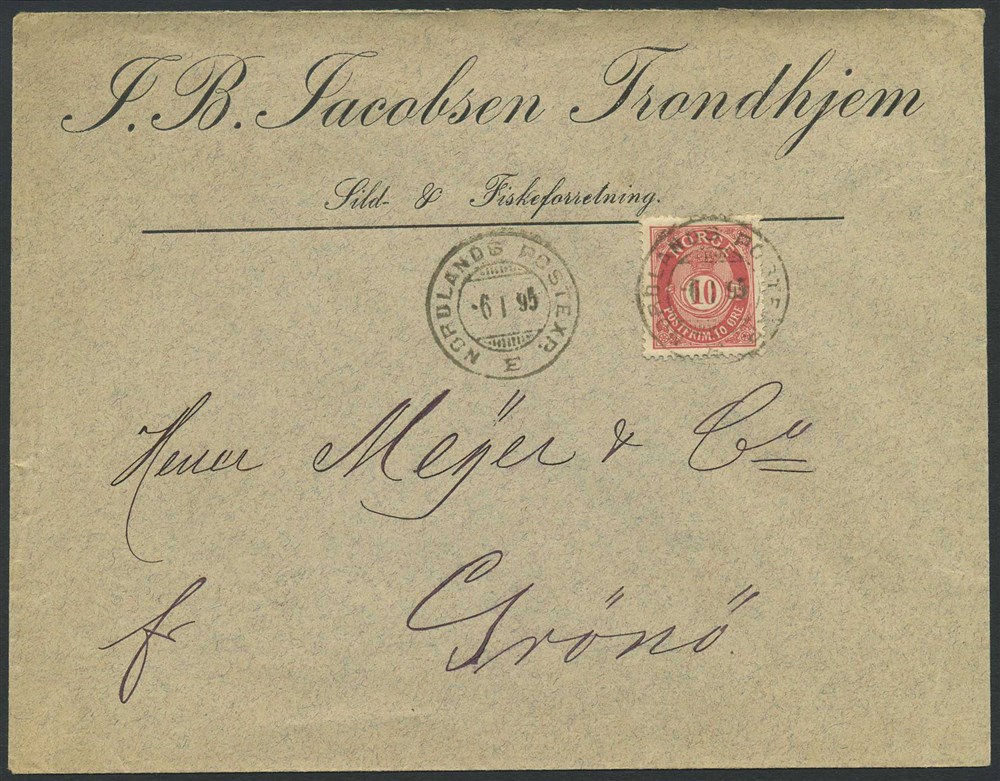 J. B. Jacobsen Trondhjem
Sild- & Fiskeforretning.
NORDLANDS POSTEXP. E
-6 I 95
NORGE
10
POSTFRIM. 10 ØRE
-6 I 95
Herrer Meÿer & Co
fr Grönö.